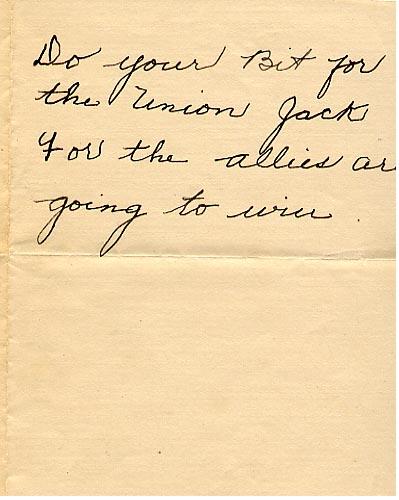 Do your Bit for
the Union Jack
For the allies are
going to win